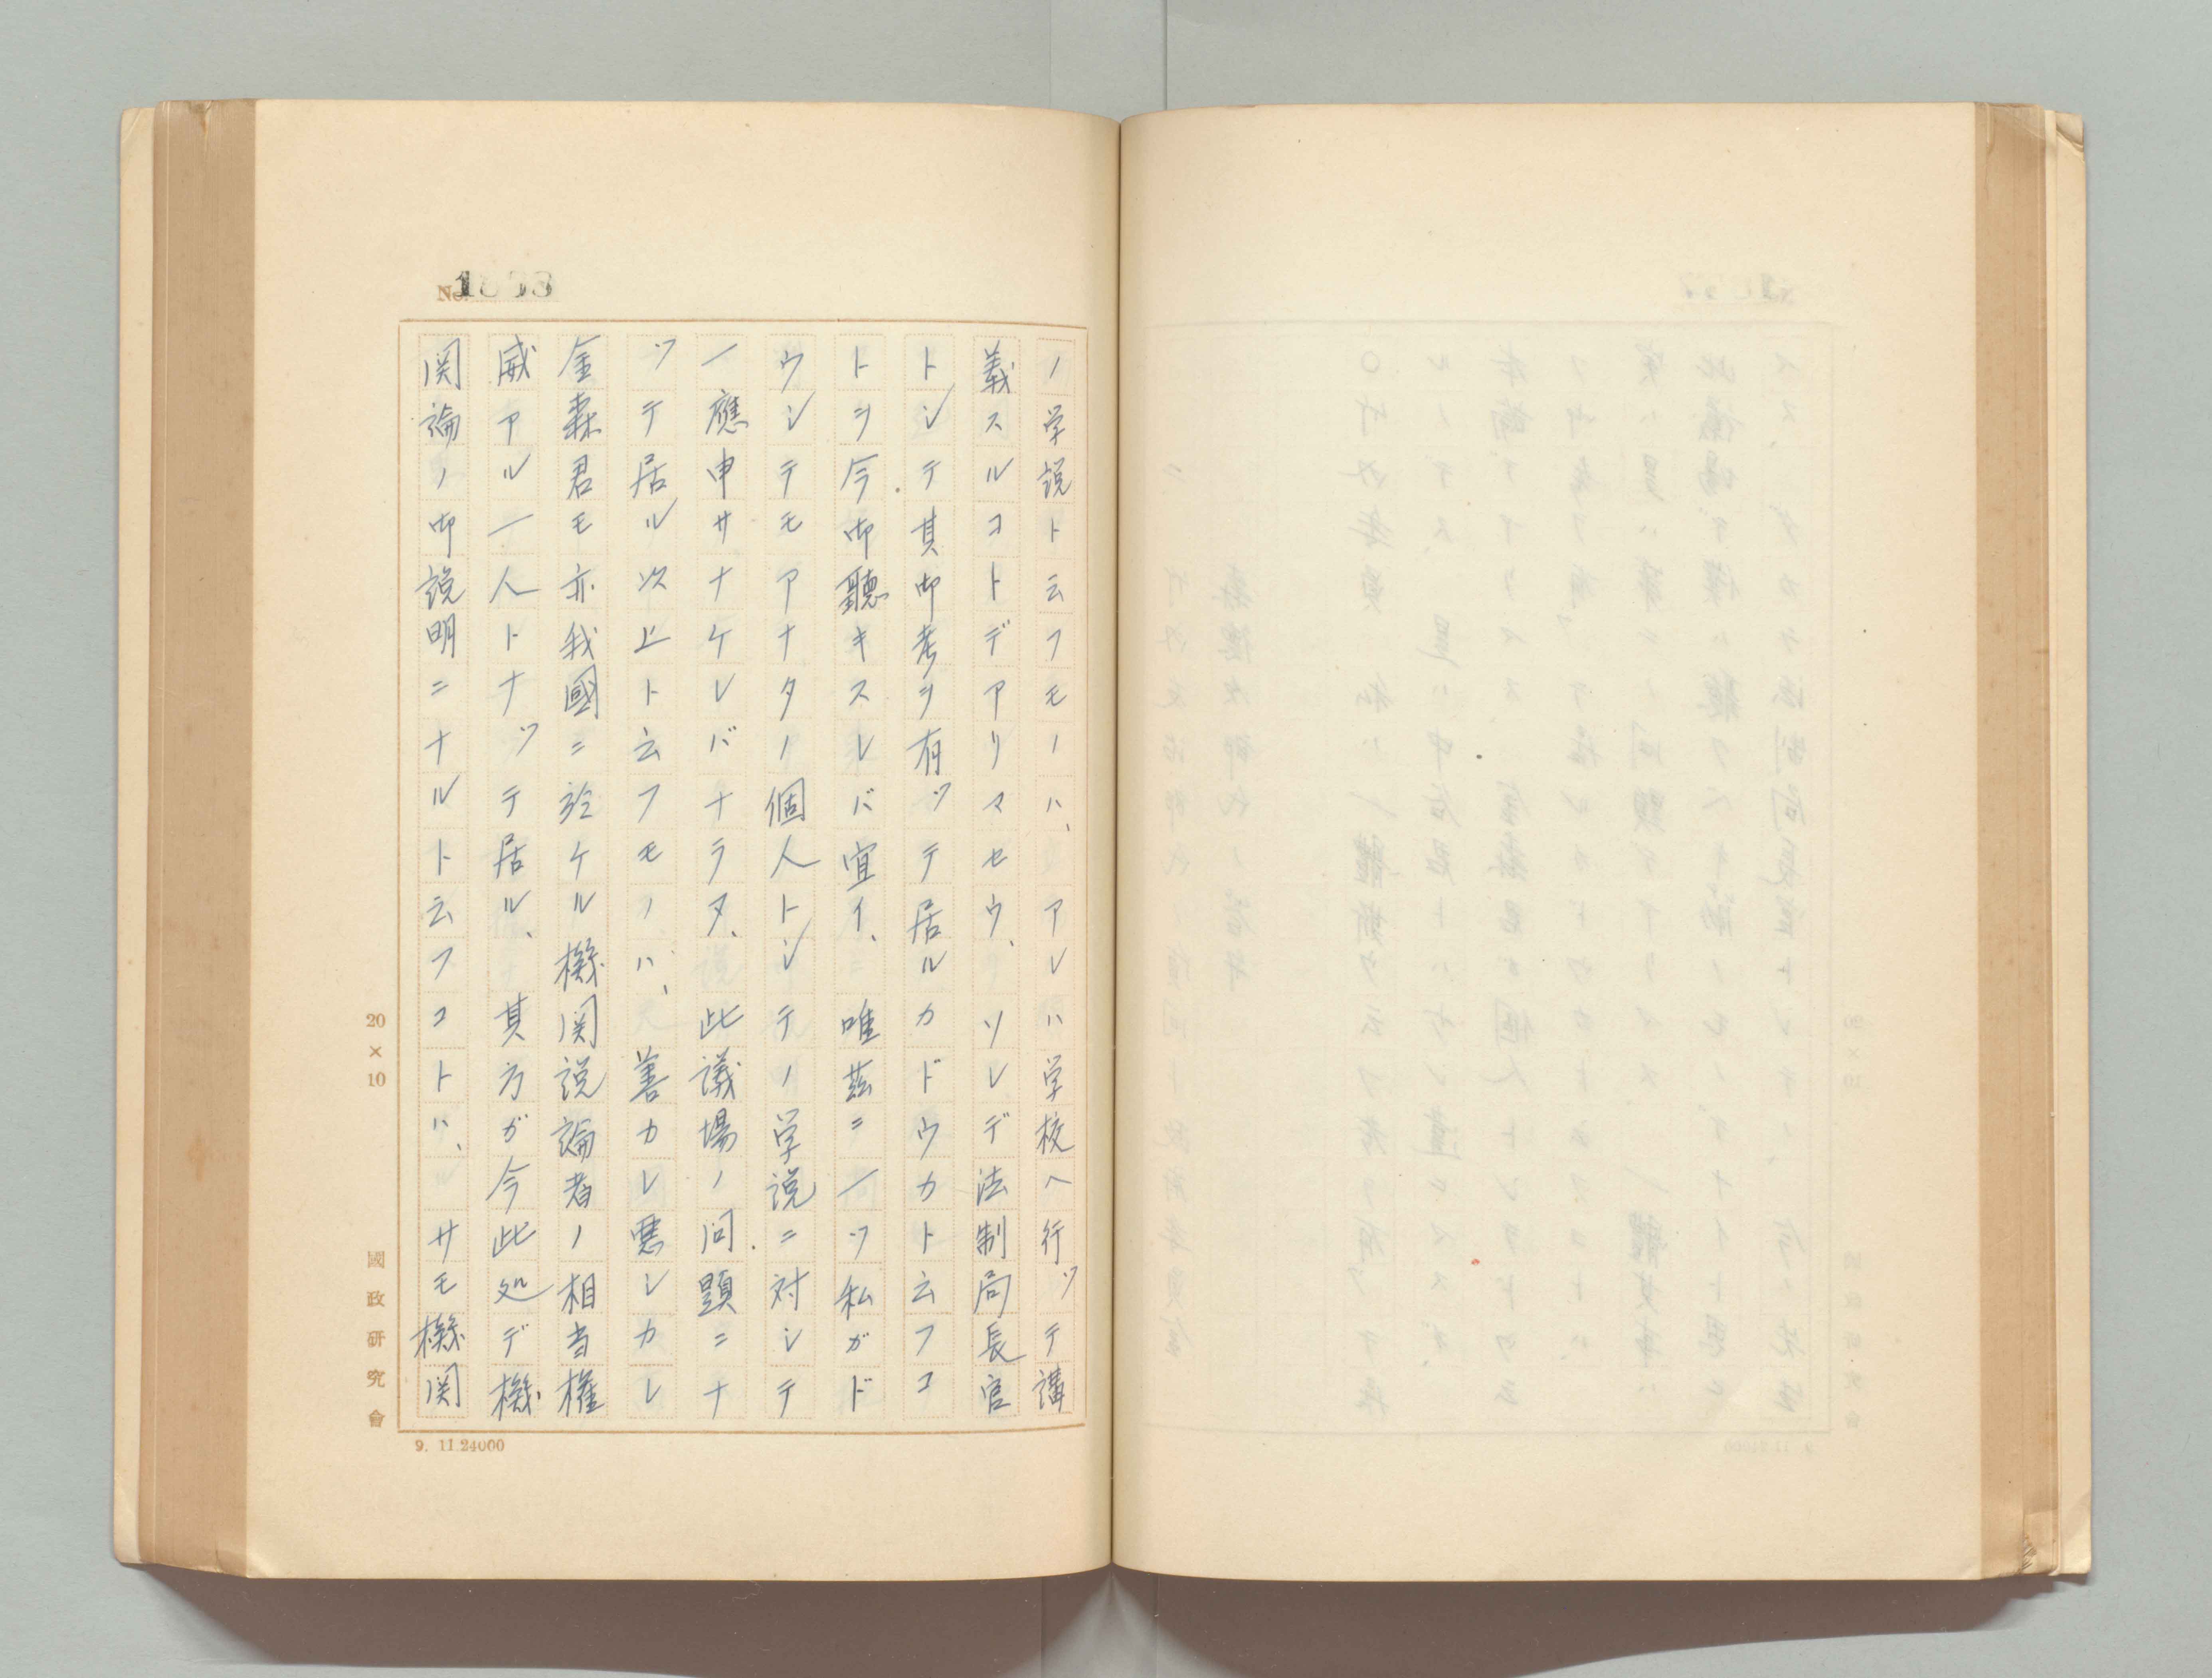 ノ学説ト云フモノハ、アレハ学校ヘ行ツテ講
義スルコトデアリマセウ、ソレデ法制局長官
トシテ其御考ヲ有ツテ居ルカドウカト云フコ
トヲ今御聽キスレバ宜イ、唯茲ニ一ツ私ガド
ウシテモアナタノ個人トシテノ学説ニ対シテ
一應申サナケレバナラヌ、此議場ノ問題ニナ
ツテ居ル以上ト云フモノハ、善カレ悪シカレ
金森君モ亦我國ニ於ケル機関説論者ノ相当権
威アル一人トナツテ居ル、其方ガ今此処デ機
関論ノ御説明ニナルト云フコトハ、サモ機関
No.
20×10
國政研究會
9. 11.24000